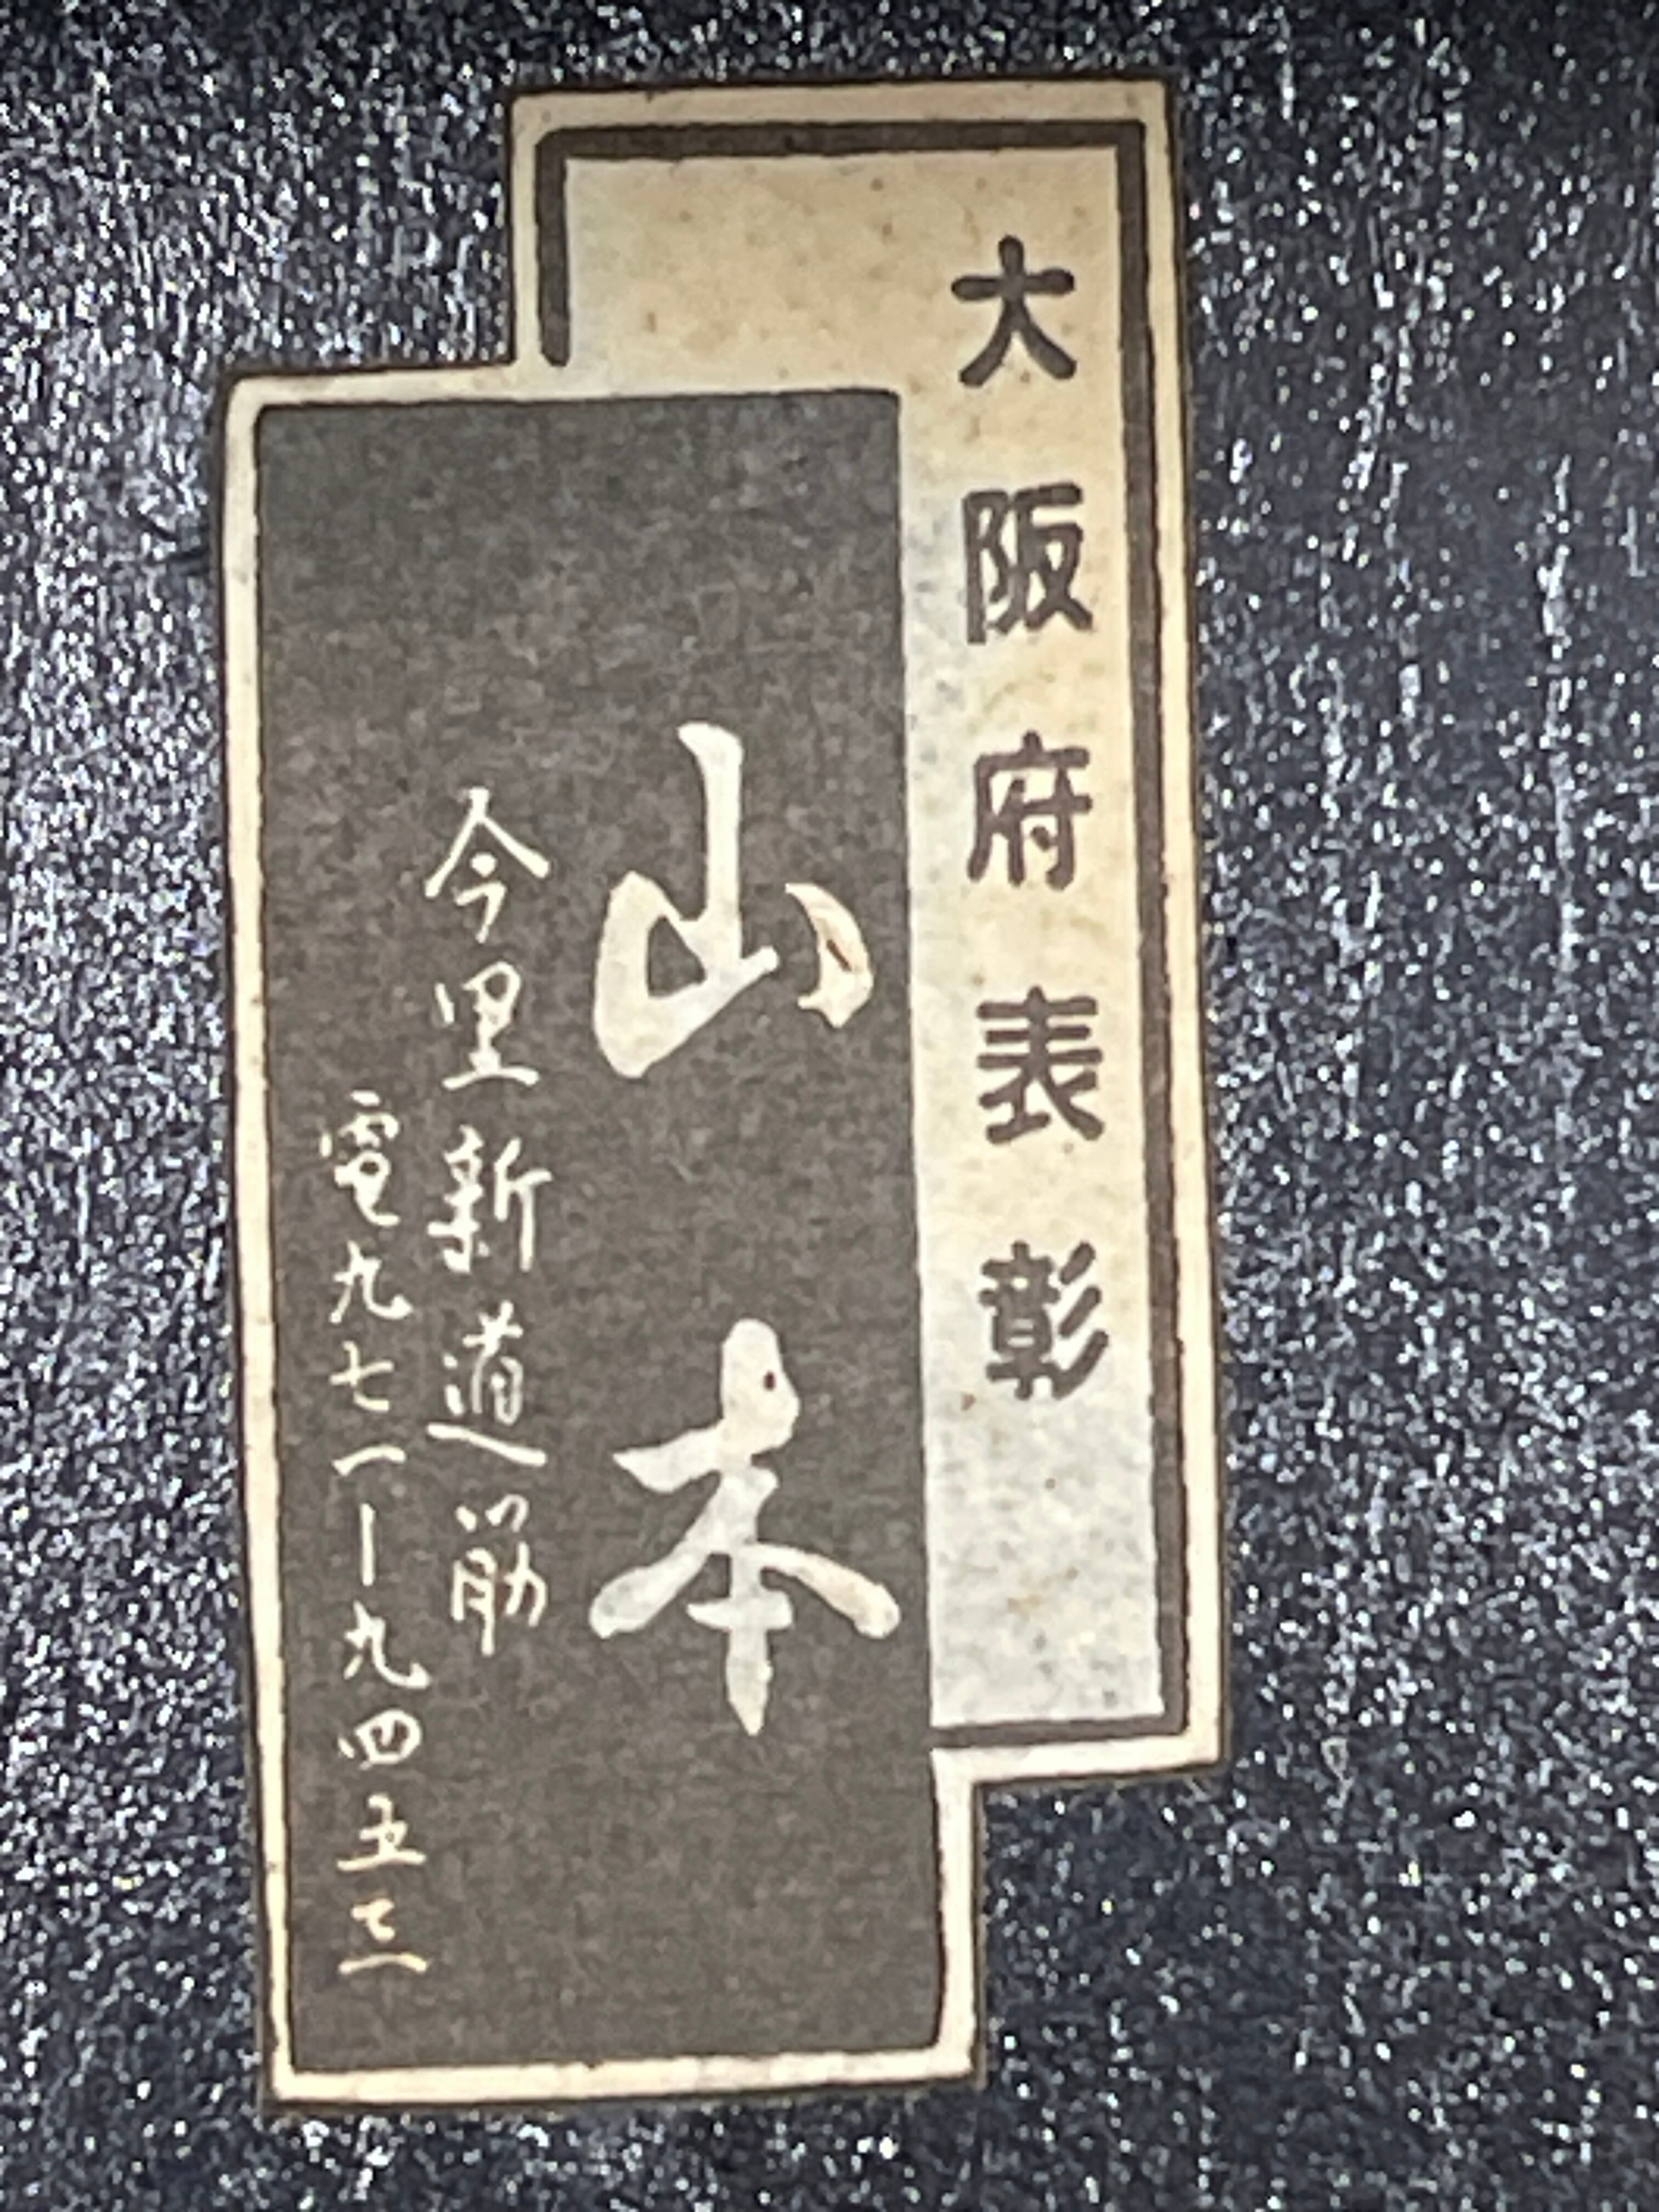 大阪府表彰
山本
今里新道筋
電九七一ー九四五三